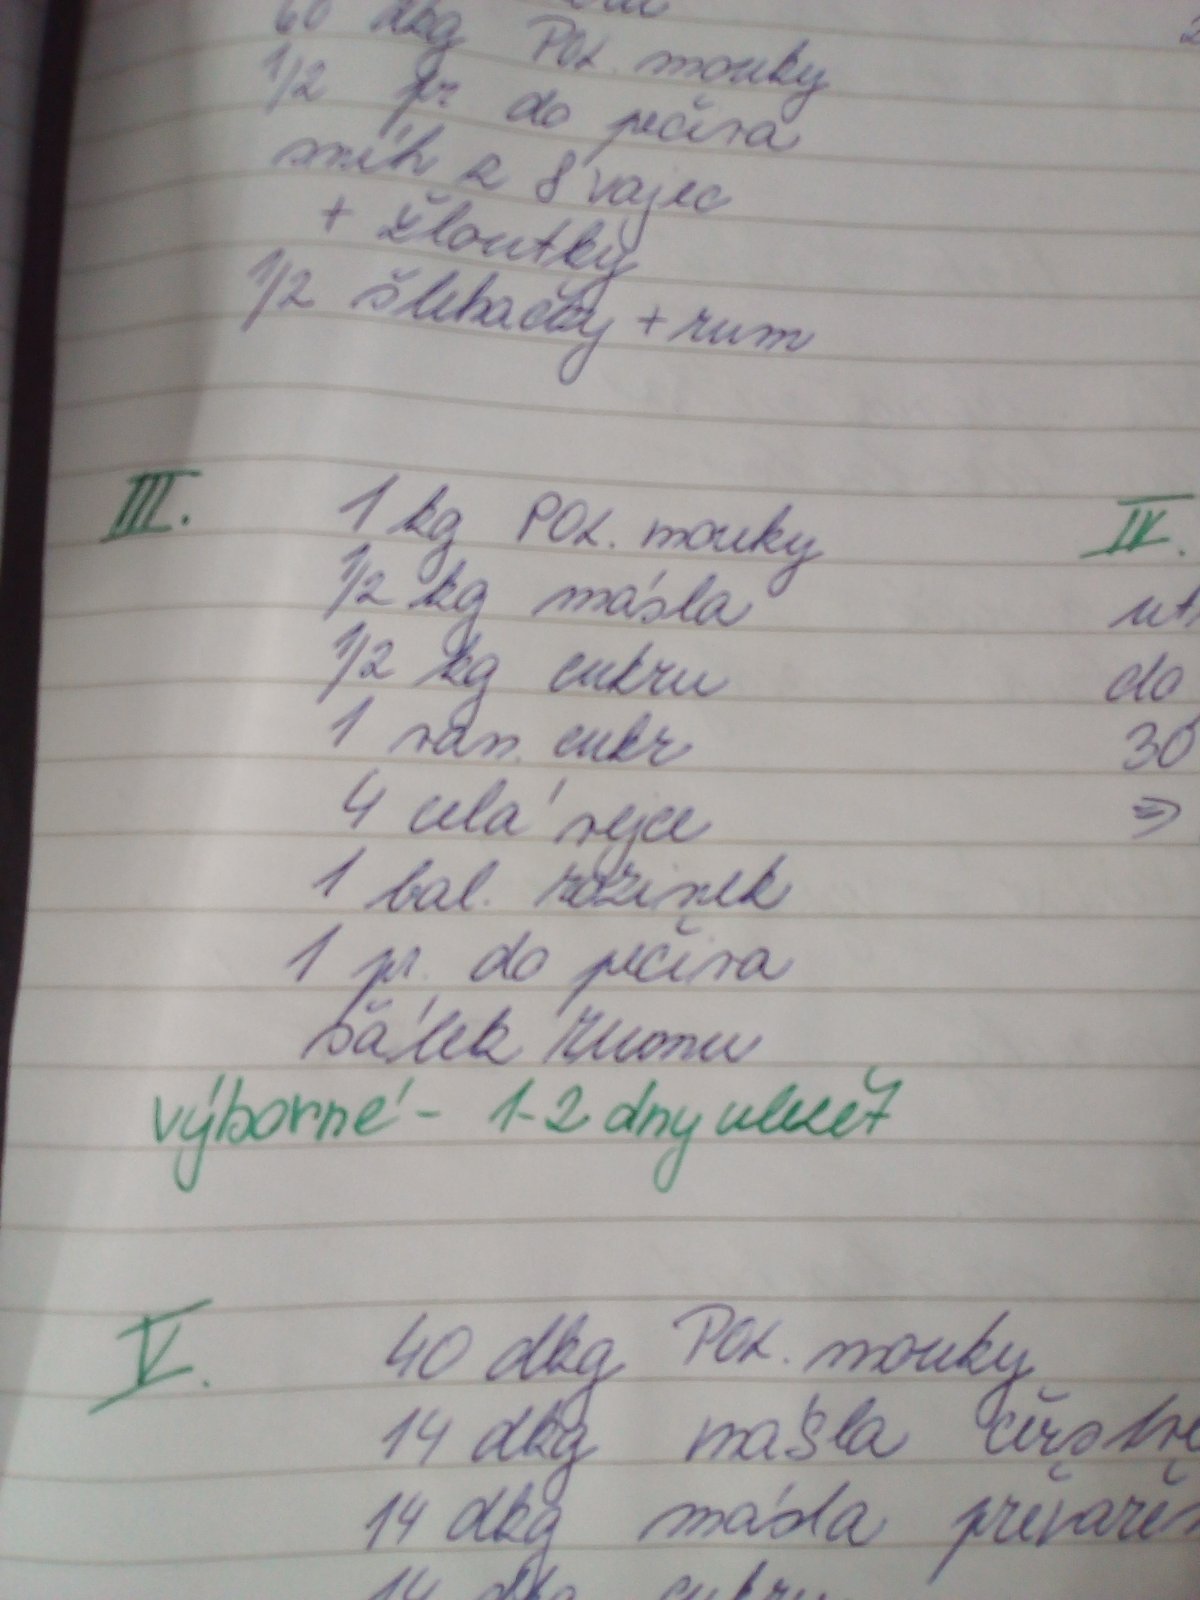 60 dkg POL. mouky
1/2 pr do pečiva
sníh z 8 vajec
+ žloutky
1/2 šlehačky + rum
III.
1 kg POL. mouky
1/2 kg másla
1/2 kg cukru
1 van. cukr
4 celá vejce
1 bal. rozinek
1 pr. do pečiva
šálek rumu
výborné - 1-2 dny uležet
IV.
do
30
⇒
V.
40 dkg POL. mouky
14 dkg másla čerstvé
14 dkg másla převaře
14 dkg cukru